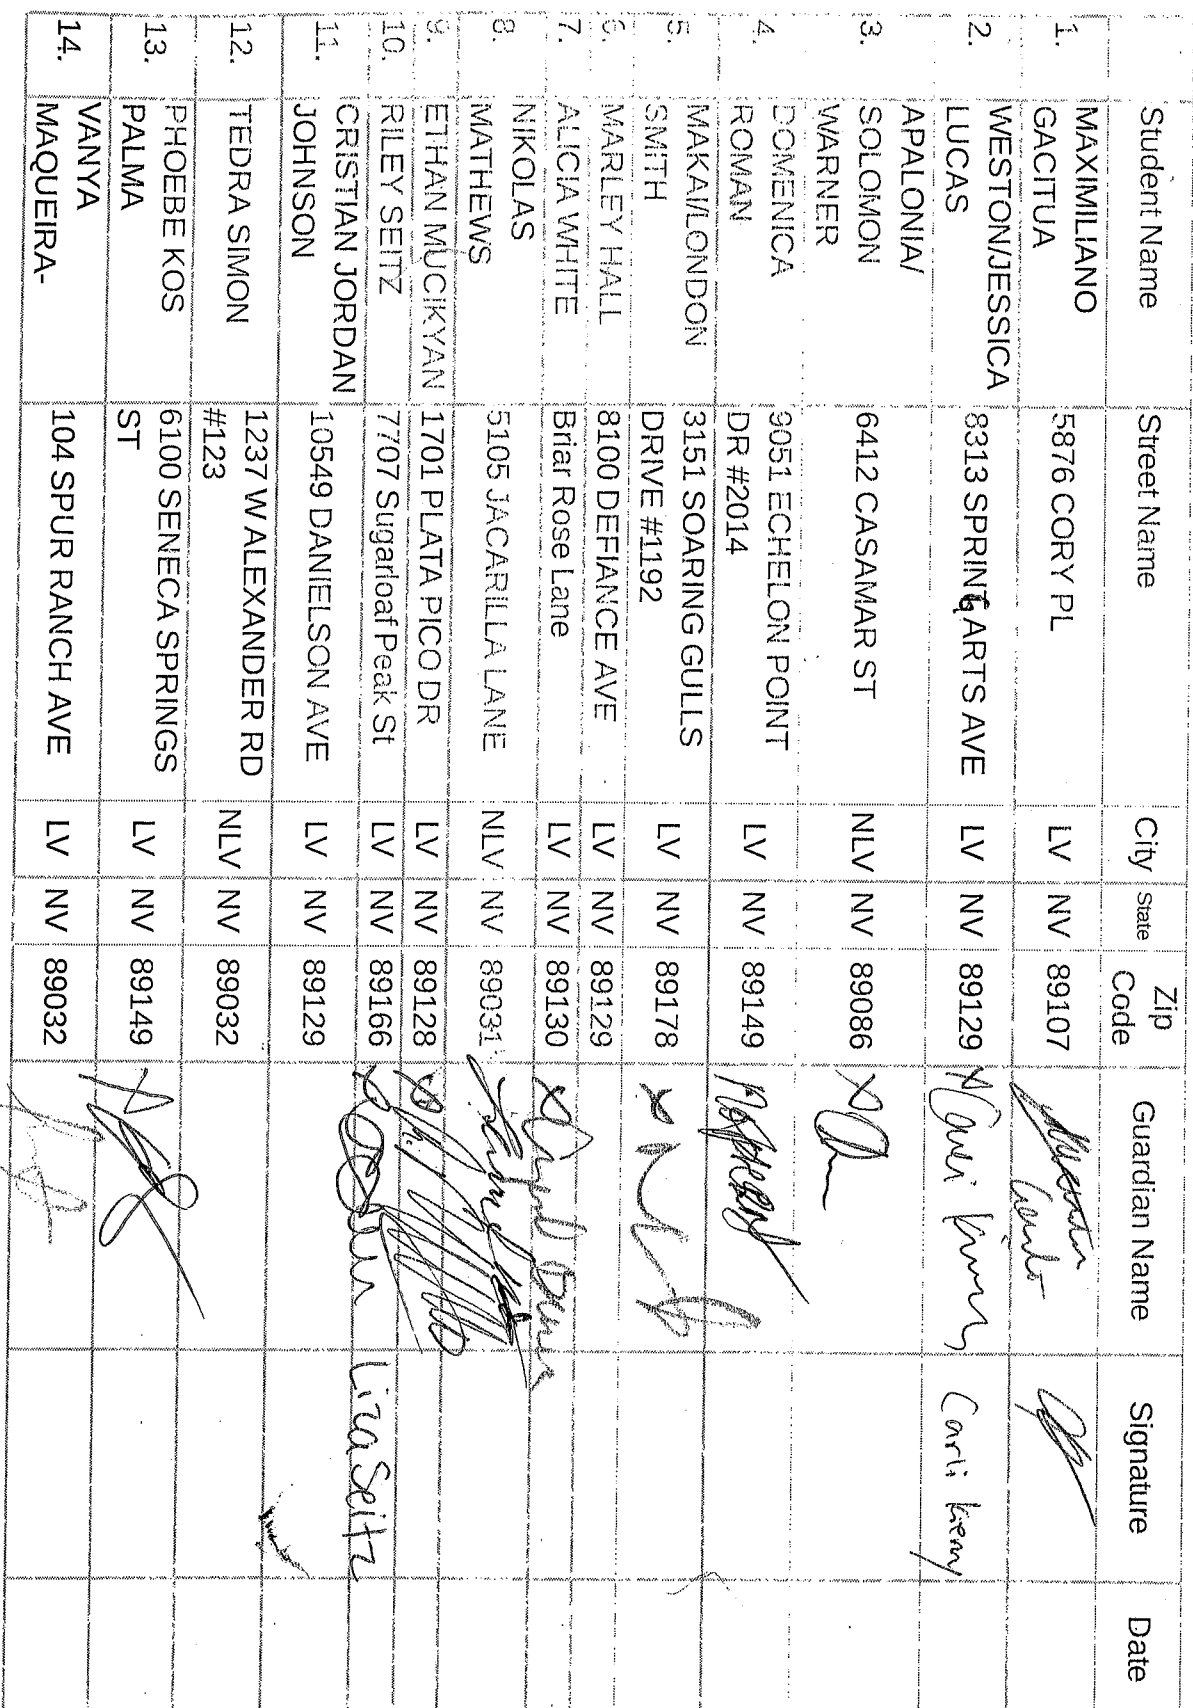 Student Name Street Name City State Zip Code Guardian Name Signature Date
1. MAXIMILIANO
GACITUA 5876 CORY PL LV NV 89107
2. WESTON/JESSICA
LUCAS 8313 SPRING ARTS AVE LV NV 89129 Carli Kierny Carli Kierny
3. APALONIA/
SOLOMON
WARNER 6412 CASAMAR ST NLV NV 89086 X
4. DOMENICA
ROMAN 9051 ECHELON POINT
DR #2014 LV NV 89149
5. MAKAI/LONDON
SMITH 3151 SOARING GULLS
DRIVE #1192 LV NV 89178 X
6. MARLEY HALL 8100 DEFIANCE AVE LV NV 89129
7. ALICIA WHITE Briar Rose Lane LV NV 89130 X
8. NIKOLAS
MATHEWS 5105 JACARILLA LANE NLV NV 89031
9. ETHAN MUCIKYAN 1701 PLATA PICO DR LV NV 89128
10. RILEY SEITZ 7707 Sugarloaf Peak St LV NV 89166 Liza Seitz
11. CRISTIAN JORDAN
JOHNSON 10549 DANIELSON AVE LV NV 89129
12. TEDRA SIMON 1237 W ALEXANDER RD
#123 NLV NV 89032
13. PHOEBE KOS
PALMA 6100 SENECA SPRINGS
ST LV NV 89149
14. VANYA
MAQUEIRA- 104 SPUR RANCH AVE LV NV 89032